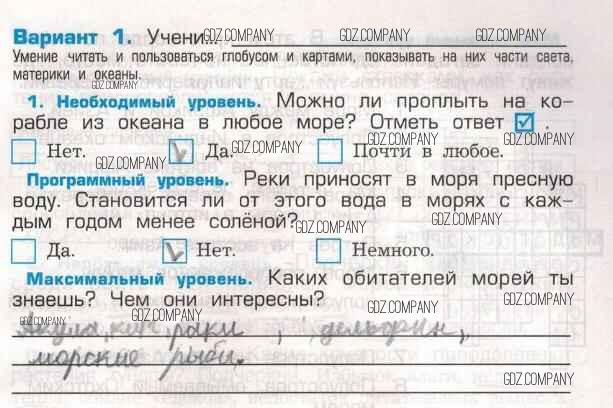 Вариант 1. Учени...
GDZ.COMPANY GDZ.COMPANY GDZ.COMPANY
Умение читать и пользоваться глобусом и картами, показывать на них части света,
материки и океаны.
GDZ.COMPANY
1. Необходимый уровень. Можно ли проплыть на ко-
рабле из океана в любое море? Отметь ответ ☑.
Нет. GDZ.COMPANY Да. GDZ.COMPANY Почти в любое. GDZ.COMPANY GDZ.COMPANY
Программный уровень. Реки приносят в моря пресную
воду. Становится ли от этого вода в морях с каж-
дым годом менее солёной? GDZ.COMPANY GDZ.COMPANY
Да. Нет. Немного. GDZ.COMPANY
Максимальный уровень. Каких обитателей морей ты
знаешь? Чем они интересны? GDZ.COMPANY GDZ.COMPANY
GDZ.COMPANY
Акула, кит, раки, дельфин,
морские рыбы.
GDZ.COMPANY